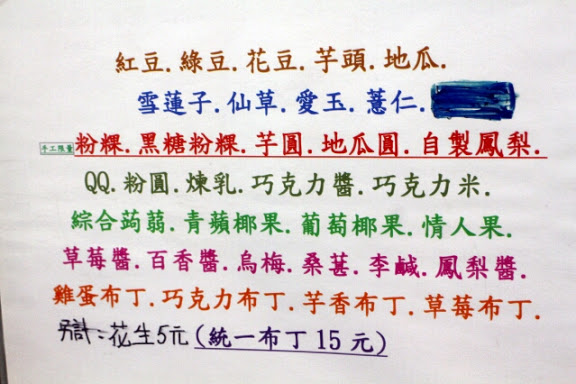 紅豆.綠豆.花豆.芋頭.地瓜.
雪蓮子.仙草.愛玉.薏仁.
手工限量 粉粿.黑糖粉粿.芋圓.地瓜圓.自製鳳梨.
QQ.粉圓.煉乳.巧克力醬.巧克力米.
綜合蒟蒻.青蘋椰果.葡萄椰果.情人果.
草莓醬.百香醬.烏梅.桑葚.李鹹.鳳梨醬.
雞蛋布丁.巧克力布丁.芋香布丁.草莓布丁.
另計:花生5元(統一布丁15元)